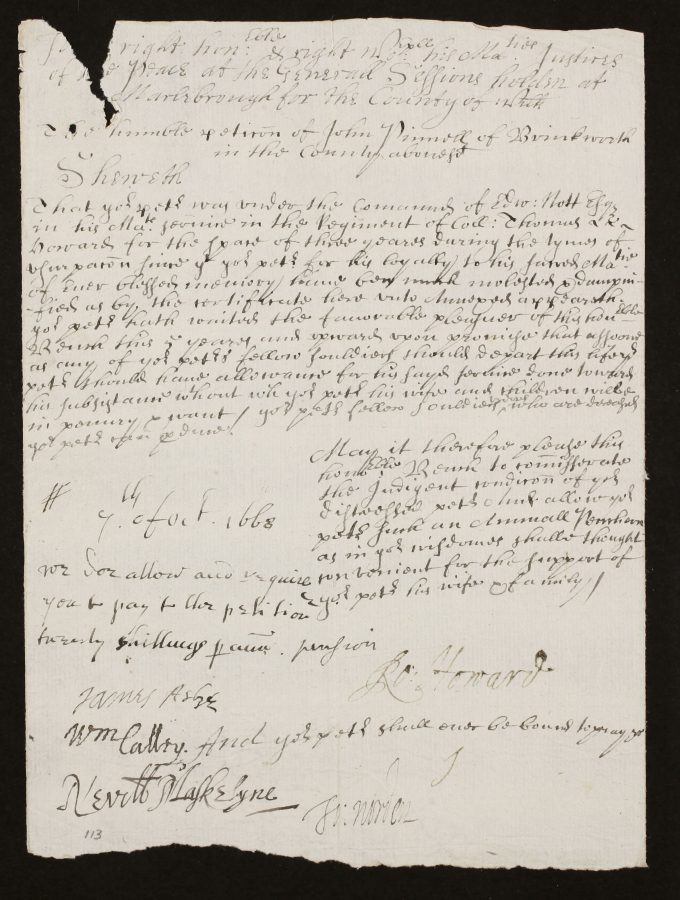 right hon:ble & right his Maties Justices
of the Peace at the Generall Sessions holden at
Marlebrough for the County of Wilts
The humble peticon of John Pinnell of Brinkworth
in the County abovesd
Sheweth
That yor petr was under the Comaund of Edw: Nott Esqr
in his Mate service in the Regiment of Coll: Thomas
Howard for the space of three yeares during the tymes of
since yt yor petr for his loyalty to his sacred Matie
of ever blessed memory have ben much molested
fied as by the certificate here unto Annexed appeareth
yor petr hath waited the favorable pleasuer of this honble
Bench this 5 yeares and upward upon promise that assoone
as any of yor petrs fellow souldiers should depart this life yor
petr should have allowance for his sayd service done towards
his subsistance whout wh yor petr his wife and children wilbe
in penury & want / yor petrs fellow souldiers who are deceased
yor petr
May it therefore please this
honoble Bench to comisserate
the Indigent condicon of yor
distressed petr And allow yor
petr such an Annuall Penchion
as in yor wisdomes shalbe thought
convenient for the support of
yor petr his wife & family /
7th of Oct. 1668
we doe allow and require
you to pay to the petitionr
twenty shillings p ann. pension
Ro: Howard
James Ashe
Wm Calley.
And yor petr shall ever be bound to pray &c
Nevill Maskelyne
Jo: Norden
113